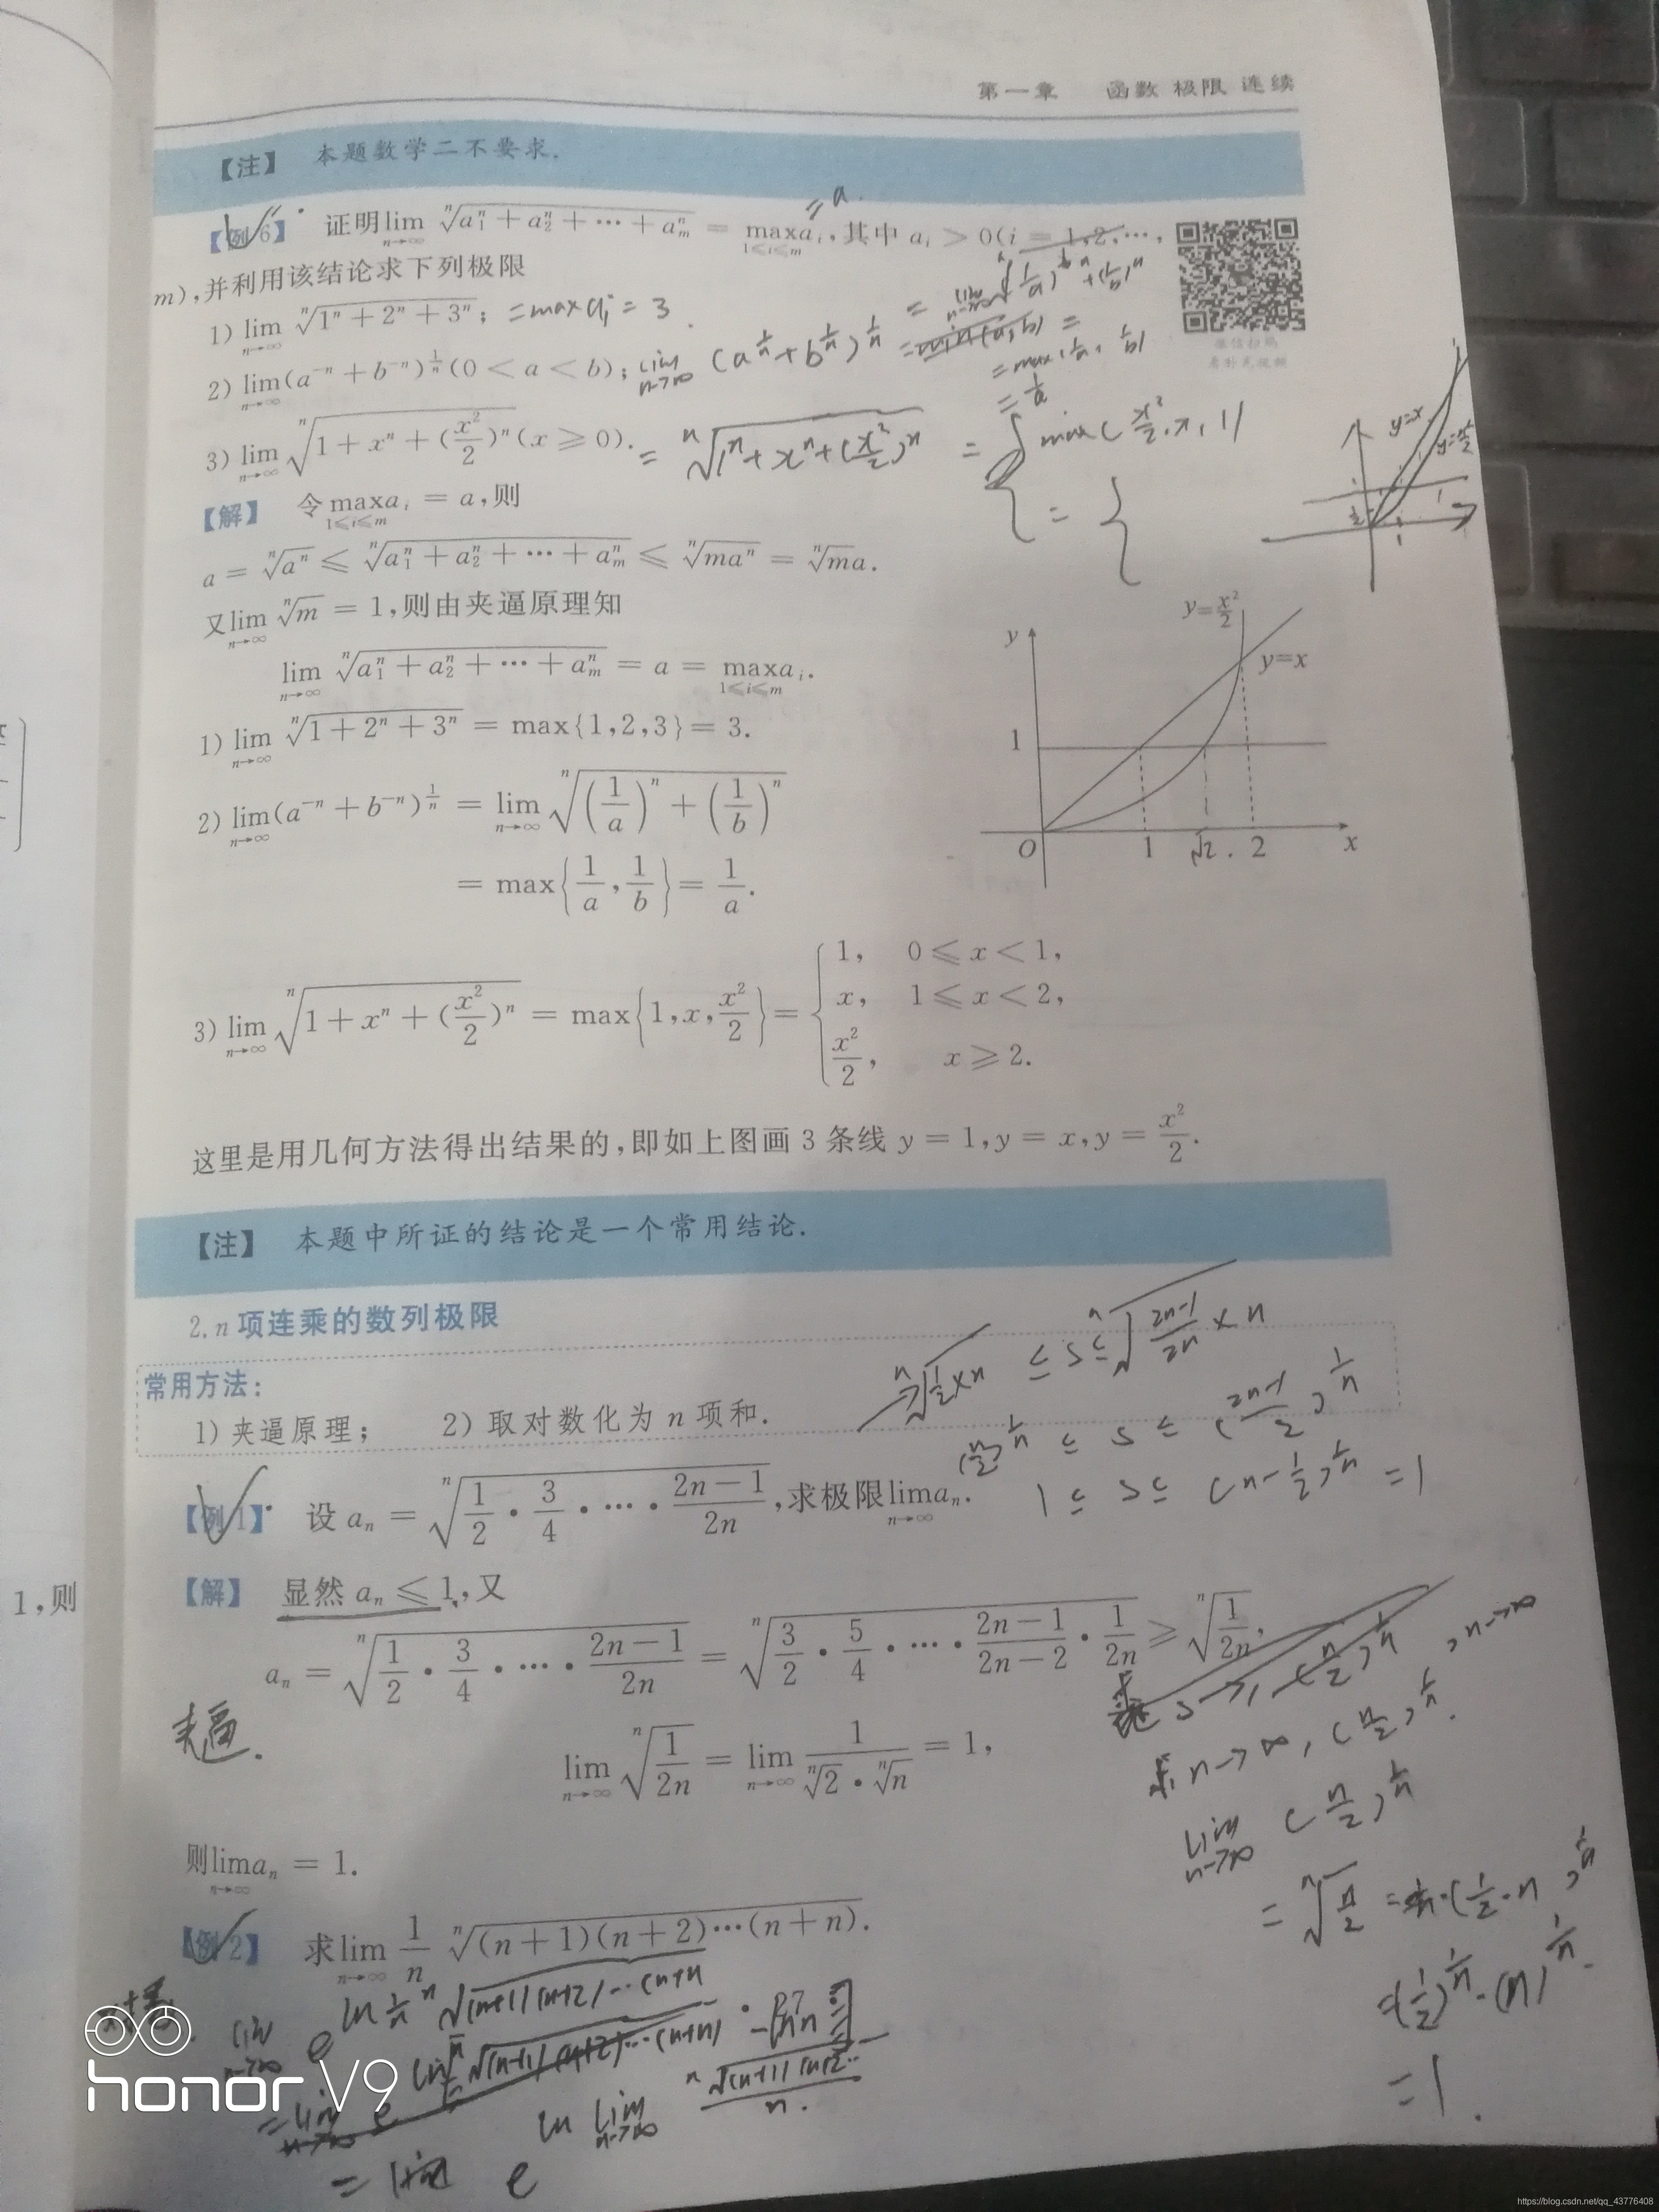 第一章 函数 极限 连续
【注】 本题数学二不要求.
【例6】 证明 lim_{n→∞} ⁿ√(a₁ⁿ + a₂ⁿ + ⋯ + aₘⁿ) = max_{1≤i≤m} aᵢ, 其中 aᵢ > 0(i = 1,2,⋯,
= a.
m),并利用该结论求下列极限
1) lim_{n→∞} ⁿ√(1ⁿ + 2ⁿ + 3ⁿ); = max aᵢ = 3.
2) lim_{n→∞} (a⁻ⁿ + b⁻ⁿ)^{1/n} (0 < a < b);
= max(1/a, 1/b)
= 1/a
3) lim_{n→∞} ⁿ√(1 + xⁿ + (x²/2)ⁿ) (x ≥ 0). = ⁿ√(1ⁿ + xⁿ + (x²/2)ⁿ) = max(x²/2, x, 1)
微信扫码
看补充视频
y=x
【解】 令 max_{1≤i≤m} aᵢ = a,则
a = ⁿ√(aⁿ) ≤ ⁿ√(a₁ⁿ + a₂ⁿ + ⋯ + aₘⁿ) ≤ ⁿ√(maⁿ) = ⁿ√m a.
又 lim_{n→∞} ⁿ√m = 1,则由夹逼原理知
lim_{n→∞} ⁿ√(a₁ⁿ + a₂ⁿ + ⋯ + aₘⁿ) = a = max_{1≤i≤m} aᵢ.
1) lim_{n→∞} ⁿ√(1 + 2ⁿ + 3ⁿ) = max{1,2,3} = 3.
2) lim_{n→∞} (a⁻ⁿ + b⁻ⁿ)^{1/n} = lim_{n→∞} ⁿ√((1/a)ⁿ + (1/b)ⁿ)
= max{1/a, 1/b} = 1/a.
y=x²/2
y
y=x
1
O 1 √2. 2 x
3) lim_{n→∞} ⁿ√(1 + xⁿ + (x²/2)ⁿ) = max{1, x, x²/2} = {
1, 0 ≤ x < 1,
x, 1 ≤ x < 2,
x²/2, x ≥ 2.
这里是用几何方法得出结果的,即如上图画 3 条线 y = 1, y = x, y = x²/2.
【注】 本题中所证的结论是一个常用结论.
2. n 项连乘的数列极限
常用方法:
1) 夹逼原理; 2) 取对数化为 n 项和.
ⁿ√(1/2 × n) ≤ s ≤ ⁿ√((2n-1)/2n × n)
(n/2)^{1/n} ≤ s ≤ ((2n-1)/2)^{1/n}
1 ≤ s ≤ (n - 1/2)^{1/n} = 1
【例1】 设 aₙ = ⁿ√(1/2 · 3/4 · ⋯ · (2n-1)/2n),求极限 lim_{n→∞} aₙ.
【解】 显然 aₙ ≤ 1,又
1,则
aₙ = ⁿ√(1/2 · 3/4 · ⋯ · (2n-1)/2n) = ⁿ√(3/2 · 5/4 · ⋯ · (2n-1)/(2n-2) · 1/2n) ≥ ⁿ√(1/2n),
夹逼.
lim_{n→∞} ⁿ√(1/2n) = lim_{n→∞} 1/(ⁿ√2 · ⁿ√n) = 1,
, n→∞
n→∞, (n/2)^{1/n}.
lim_{n→∞} (n/2)^{1/n}
= ⁿ√(n/2) = (1/2 · n)^{1/n}
= (1/2)^{1/n} · (n)^{1/n}.
= 1.
则 lim_{n→∞} aₙ = 1.
【例2】 求 lim_{n→∞} 1/n ⁿ√((n+1)(n+2)⋯(n+n)).
lim_{n→∞} e^{ln 1/n ⁿ√((n+1)(n+2)⋯(n+n)}
ln lim_{n→∞}
honor V9
https://blog.csdn.net/qq_43776408